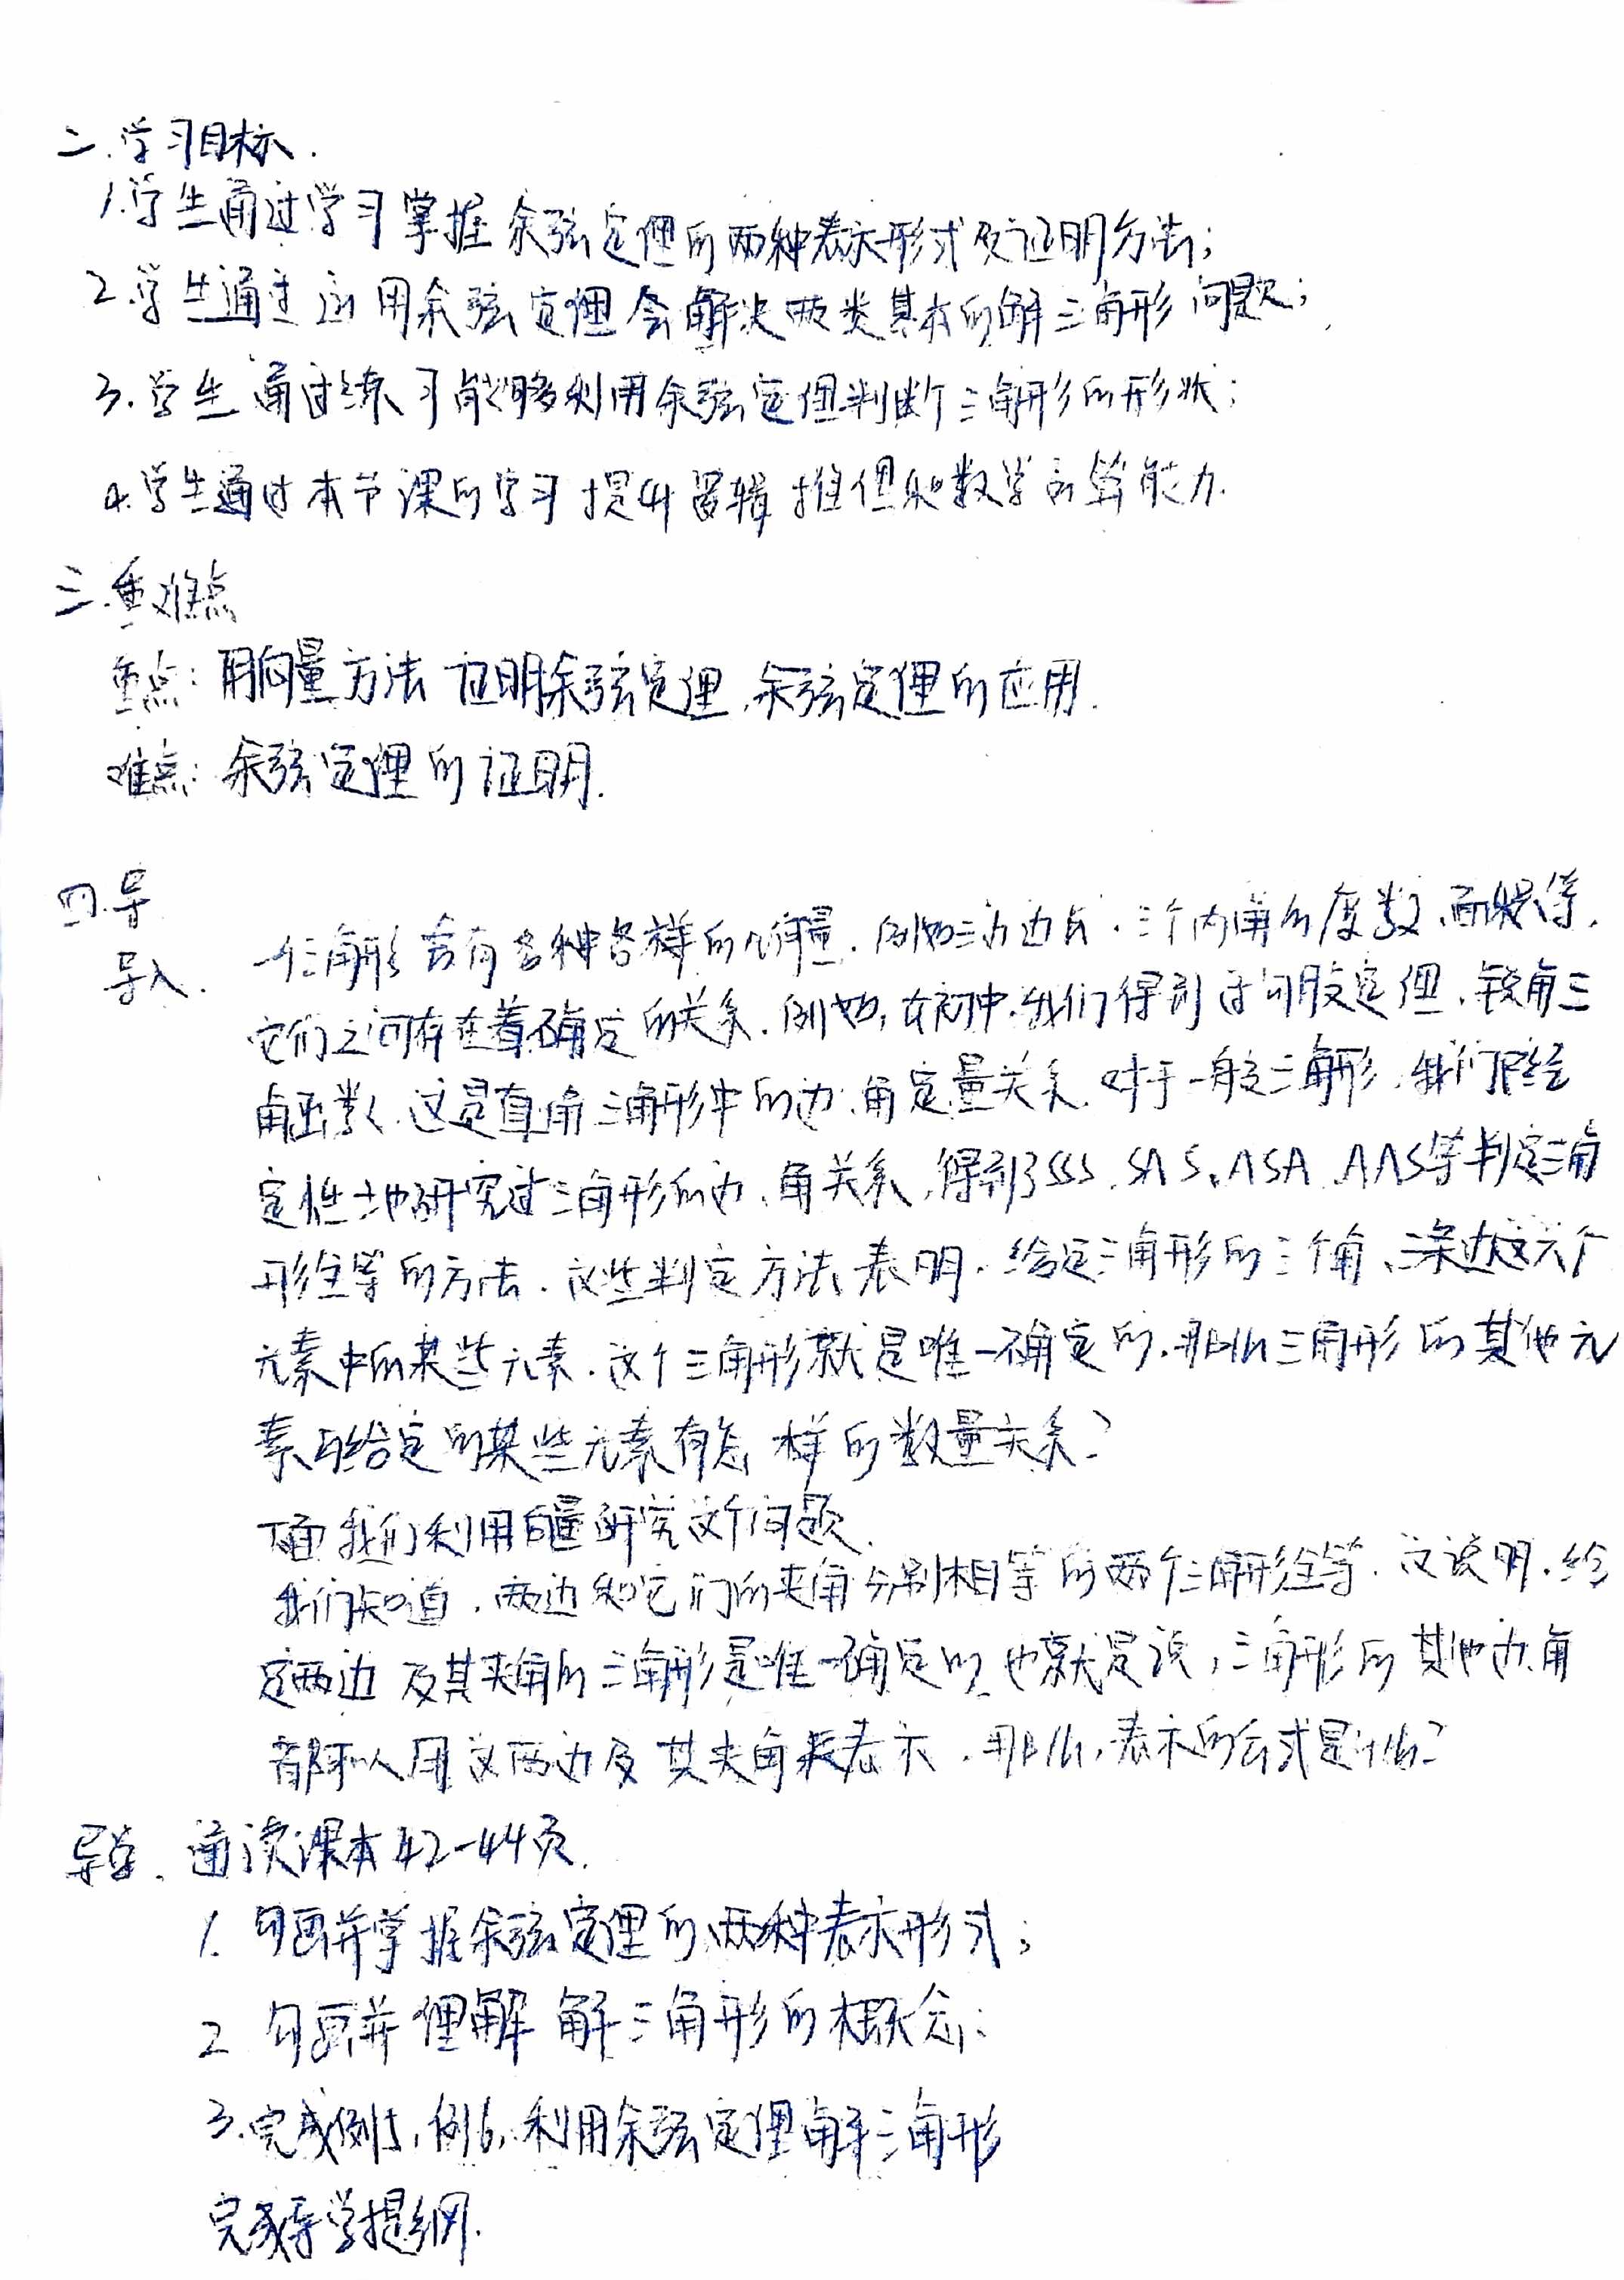 二.学习目标.
1.学生通过学习掌握余弦定理的两种表示形式及证明方法;
2.学生通过应用余弦定理会解决两类基本的解三角形问题;
3.学生通过练习能够利用余弦定理判断三角形的形状;
4.学生通过本节课的学习提升逻辑推理和数学运算能力.
三.重难点
重点:用向量方法证明余弦定理,余弦定理的应用.
难点:余弦定理的证明.
四.导
导入. 一个三角形含有各种各样的几何量,例如三边边长、三个内角的度数、面积等,
它们之间存在着确定的关系.例如,在初中,我们得到过勾股定理、锐角三
角函数,这是直角三角形中的边、角定量关系.对于一般三角形,我们已经
定性地研究过三角形的边、角关系,得到了SSS、SAS、ASA、AAS等判定三角
形全等的方法.这些判定方法表明,给定三角形的三个角、三条边这六个
元素中的某些元素,这个三角形就是唯一确定的.那么三角形的其他元
素与给定的某些元素有怎样的数量关系?
下面我们利用向量研究这个问题.
我们知道,两边和它们的夹角分别相等的两个三角形全等.这说明,给
定两边及其夹角的三角形是唯一确定的.也就是说,三角形的其他边、角
都可以用这两边及其夹角来表示.那么,表示的公式是什么?
导学. 通读课本42-44页.
1. 勾画并掌握余弦定理的两种表示形式;
2. 勾画并理解解三角形的概念;
3.完成例5,例6,利用余弦定理解三角形
完成导学提纲.